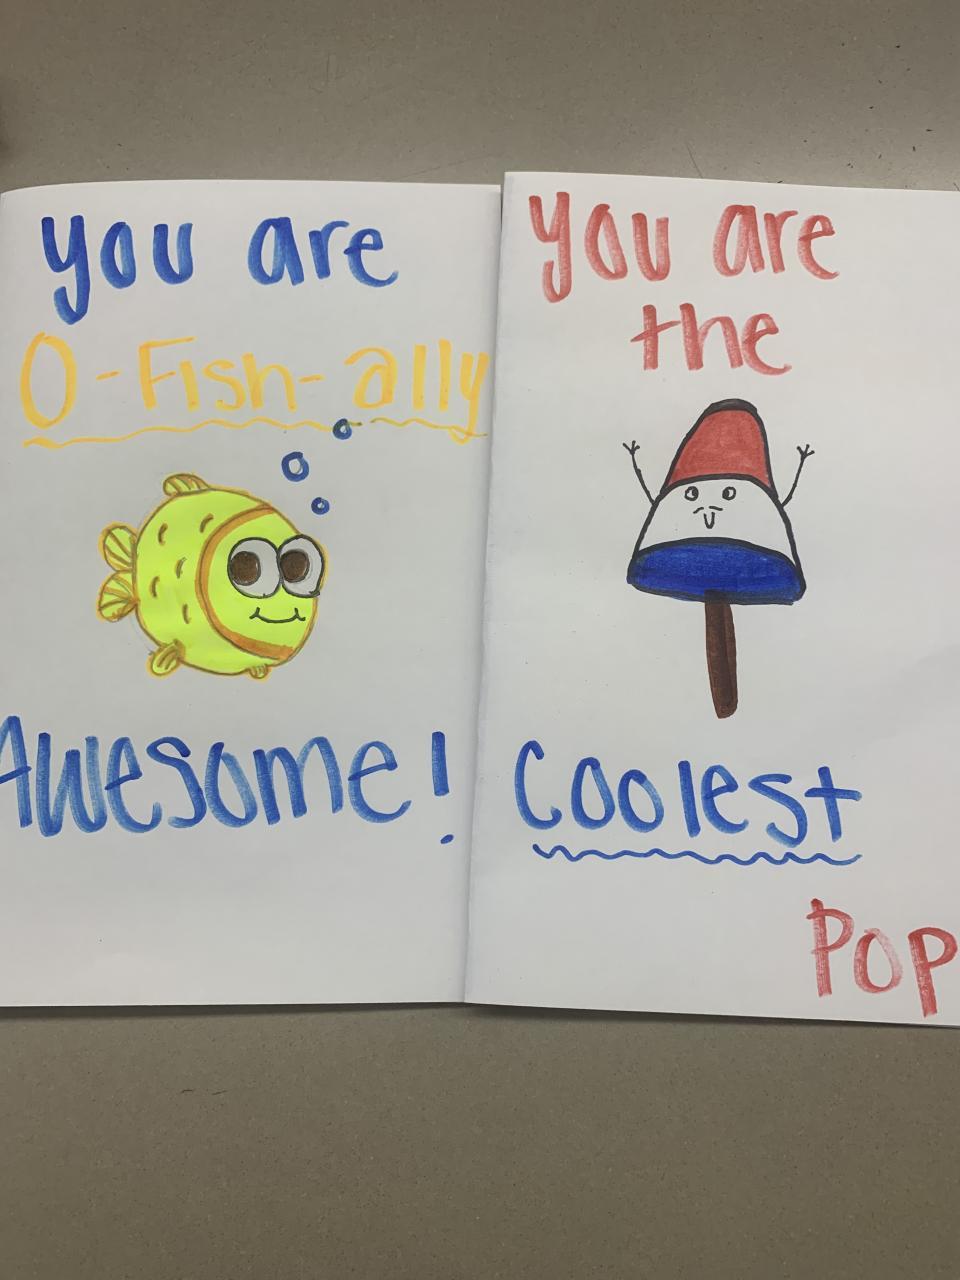 you are
O-Fish-ally
Awesome!
you are
the
Coolest
Pop